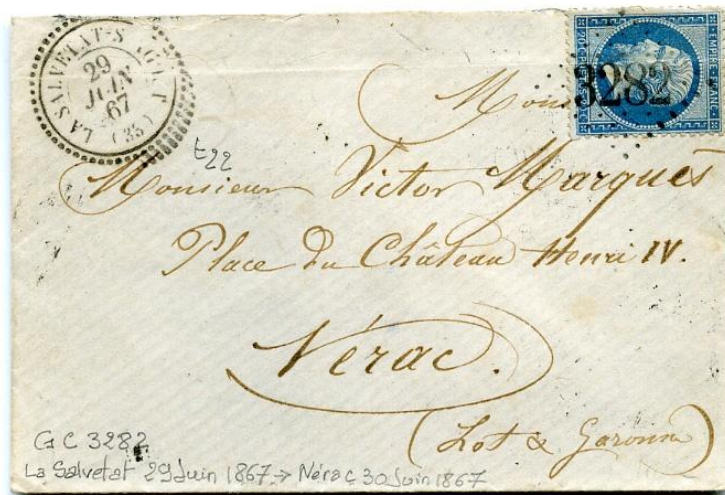 LA SALVETAT-S-AGOUT
29
JUIN
67
(33)
EMPIRE FRANC
3282
20 C POSTES 20 C
t22
Monsieur
Monsieur Victor Marquès
Place du Château Henri IV.
Nérac.
(Lot & Garonne)
GC 3282
La Salvetat 29 Juin 1867 → Nérac 30 Juin 1867